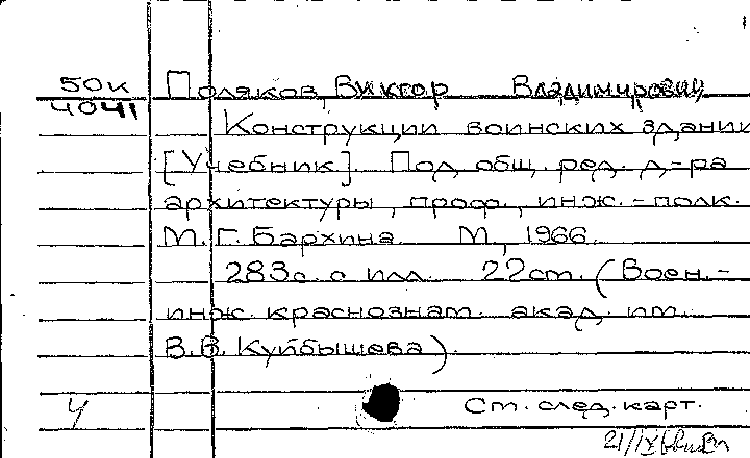 50к Поляков, Виктор Владимирович
4041
Конструкции воинских здании
[Учебник]. Под общ. ред. д-ра
архитектуры, проф., инж.-полк.
М. Г. Бархина. М., 1966.
283с. с илл. 22см. (Воен.-
инж. краснознам. акад. им.
В.В. Куйбышева).
У Ст. след. карт.